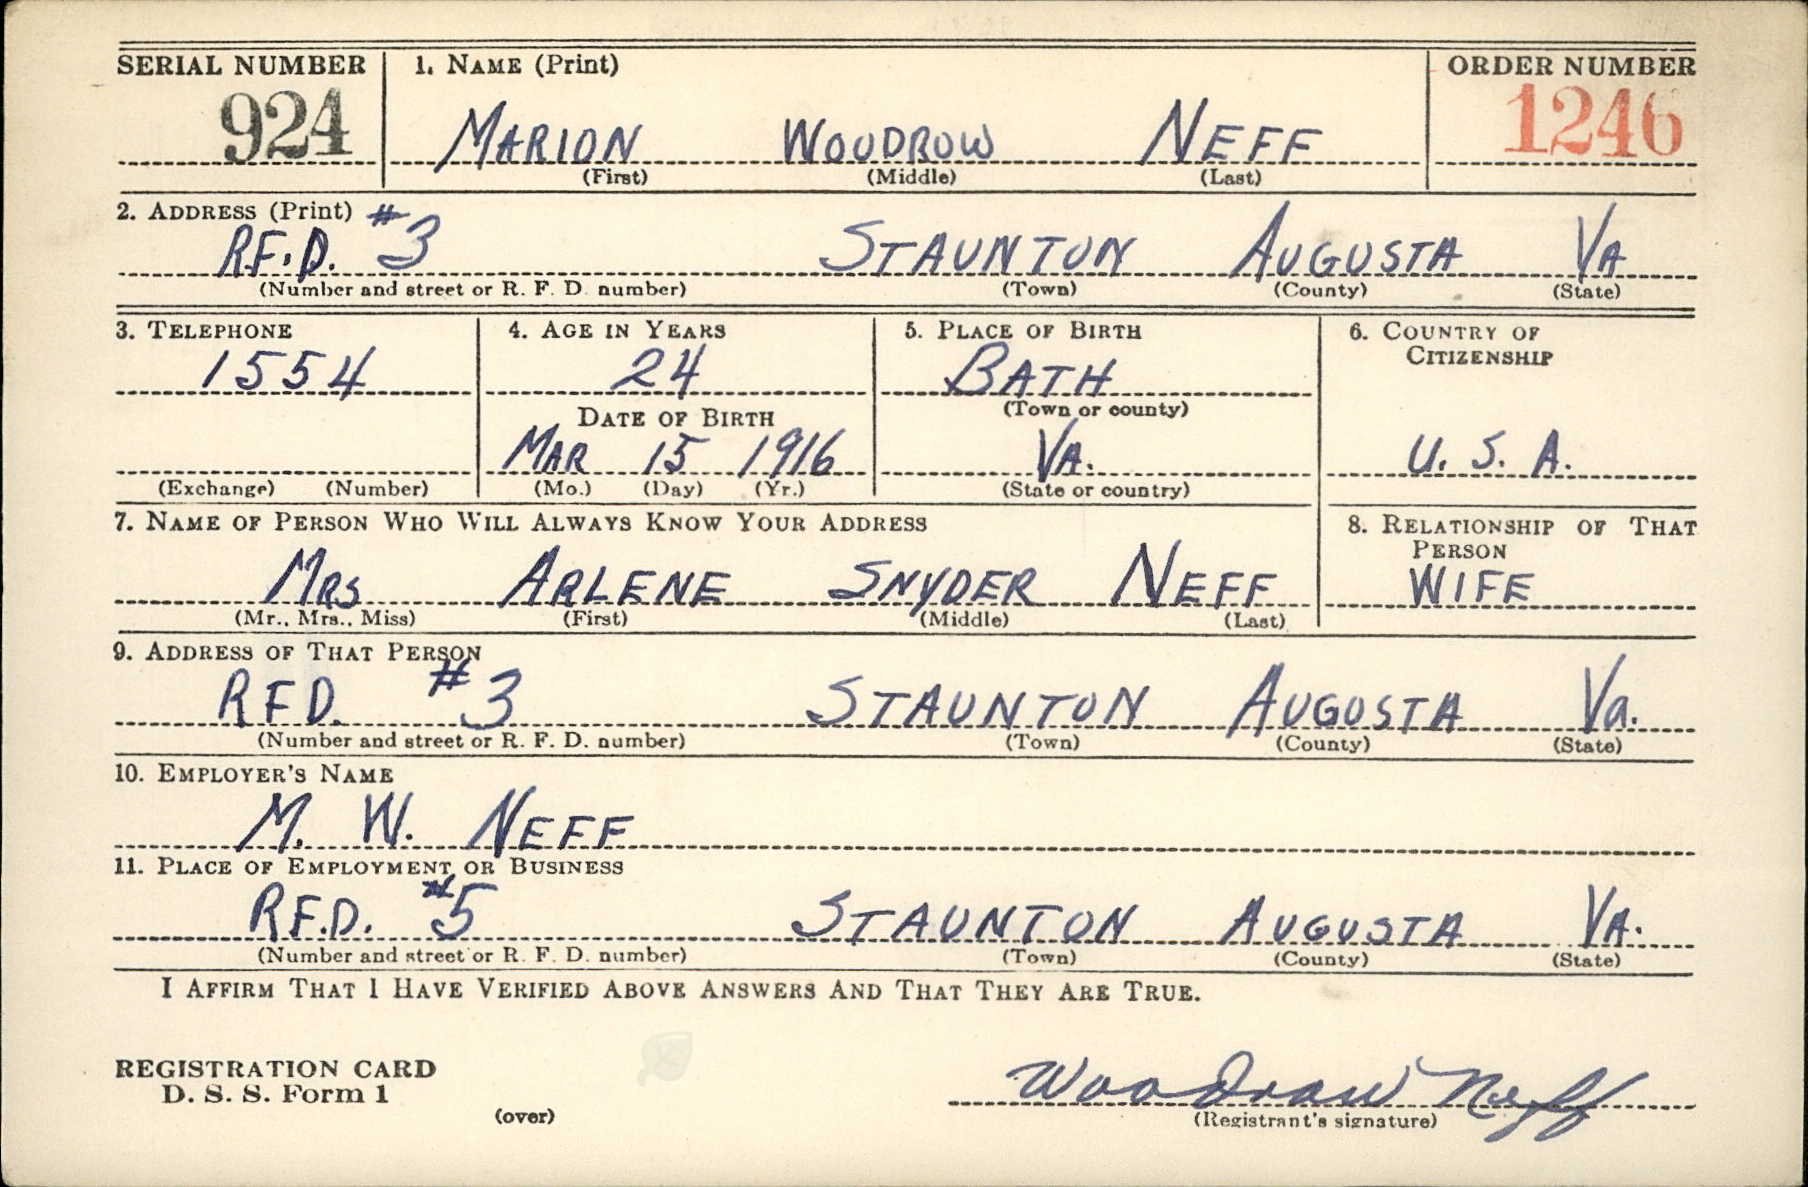 SERIAL NUMBER 1. NAME (Print) ORDER NUMBER
924 MARION WOODROW NEFF 1246
(First) (Middle) (Last)
2. ADDRESS (Print)
R.F.D. #3 STAUNTON AUGUSTA VA
(Number and street or R. F. D. number) (Town) (County) (State)
3. TELEPHONE 4. AGE IN YEARS 5. PLACE OF BIRTH 6. COUNTRY OF CITIZENSHIP
1554 24 BATH
DATE OF BIRTH (Town or county)
MAR 15 1916 VA. U. S. A.
(Exchange) (Number) (Mo.) (Day) (Yr.) (State or country)
7. NAME OF PERSON WHO WILL ALWAYS KNOW YOUR ADDRESS 8. RELATIONSHIP OF THAT PERSON
MRS ARLENE SNYDER NEFF WIFE
(Mr., Mrs., Miss) (First) (Middle) (Last)
9. ADDRESS OF THAT PERSON
R F D. #3 STAUNTON AUGUSTA Va.
(Number and street or R. F. D. number) (Town) (County) (State)
10. EMPLOYER'S NAME
M. W. NEFF
11. PLACE OF EMPLOYMENT OR BUSINESS
R.F.D. #5 STAUNTON AUGUSTA VA.
(Number and street or R. F. D. number) (Town) (County) (State)
I AFFIRM THAT I HAVE VERIFIED ABOVE ANSWERS AND THAT THEY ARE TRUE.
REGISTRATION CARD
D. S. S. Form 1 Woodrow Neff
(over) (Registrant's signature)